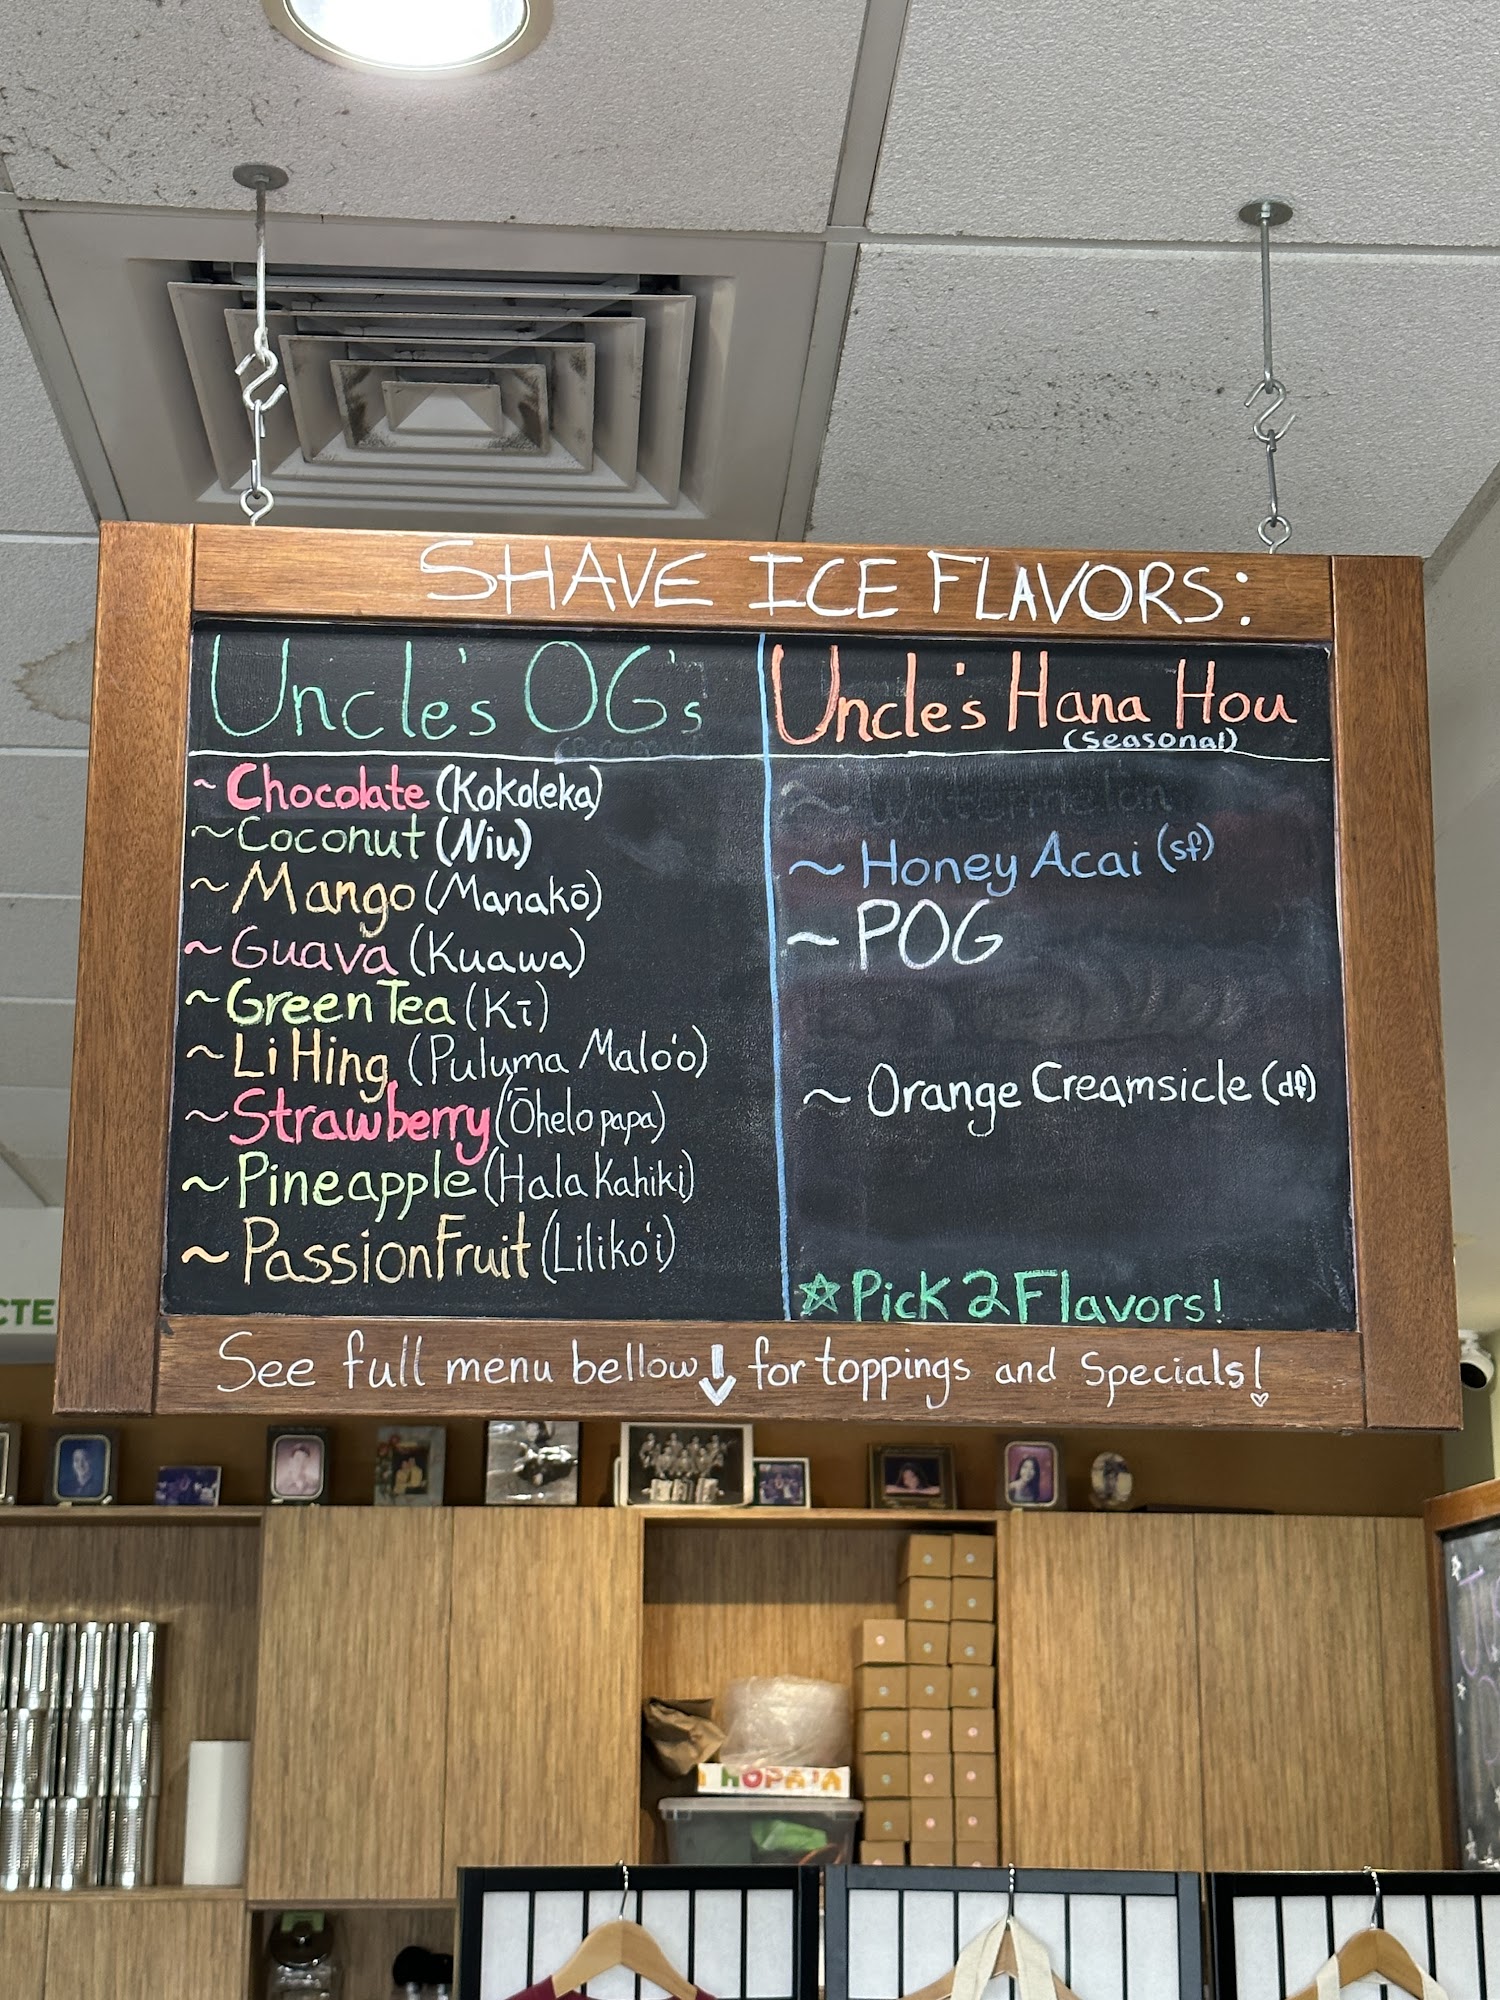 SHAVE ICE FLAVORS:
Uncle's OG's
~Chocolate (Kokoleka)
~Coconut (Niu)
~Mango (Manakō)
~Guava (Kuawa)
~Green Tea (Kī)
~Li Hing (Puluma Malo'o)
~Strawberry ('Ōhelo papa)
~Pineapple (Hala Kahiki)
~PassionFruit (Liliko'i)
Uncle's Hana Hou
(Seasonal)
~ Watermelon
~ Honey Acai (sf)
~ POG
~ Orange Creamsicle (df)
☆Pick 2 Flavors!
See full menu bellow↓ for toppings and Specials!
CTE